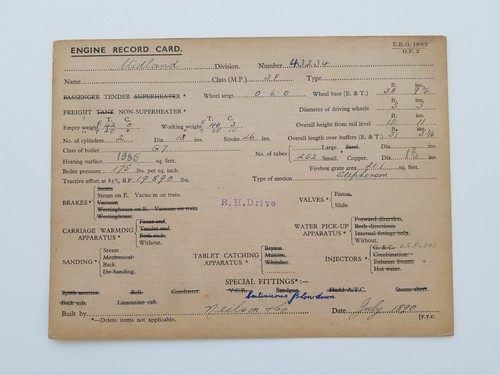 ENGINE RECORD CARD.
E.R.O.
O.P. 2
Midland Division. Number 43234
Name Class (M.P.) 3F Type
PASSENGER TENDER SUPERHEATER * Wheel arrgt. 0-6-0 Wheel base (E. & T.) ft. 38 ins.
FREIGHT TANK NON-SUPERHEATER * Diameter of driving wheels
Empty weight T. C. Working weight T. C. Overall height from rail level 12 11
No. of cylinders 2 Dia 18 ins. Stroke 26 ins. Overall length over buffers (E. & T.)
Class of boiler G7 No. of tubes: Large, Steel.
Heating surface sq. feet. 252 Small, Copper. Dia. ins.
Boiler pressure 175 lbs. per sq. inch. Firebox grate area 21.1 sq. feet.
Tractive effort at 85% B.P. 19,890 lbs. Type of motion Stephenson
BRAKES * Steam
Steam on E. Vacuum on train.
Vacuum
Westinghouse on E. Vacuum on train
Westinghouse
R.H. Drive
VALVES * Piston.
Slide
CARRIAGE WARMING APPARATUS * Front end.
Tender end.
Both ends.
Without.
WATER PICK-UP APPARATUS * Forward direction.
Both directions.
Internal fittings only.
Without.
SANDING * Steam
Mechanical
Back.
De-Sanding.
TABLET CATCHING APPARATUS * Bryson
Manson
Whitaker
INJECTORS * G. & C.
Combination.
Exhaust Steam.
Hot water.
SPECIAL FITTINGS * :—
Spark arrester. Bell. Condenser. V.C.R. Sandgun. Hudd A.T.C. Storm sheet.
Back cab. Limousine cab. Continuous Blowdown
Built by Neilson & Co Date July 1890
*—Delete items not applicable. [P.T.O.